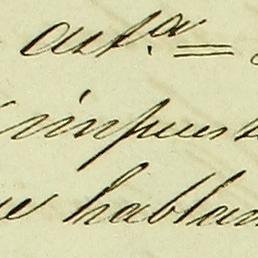 art.a =
impuest
ue hablan